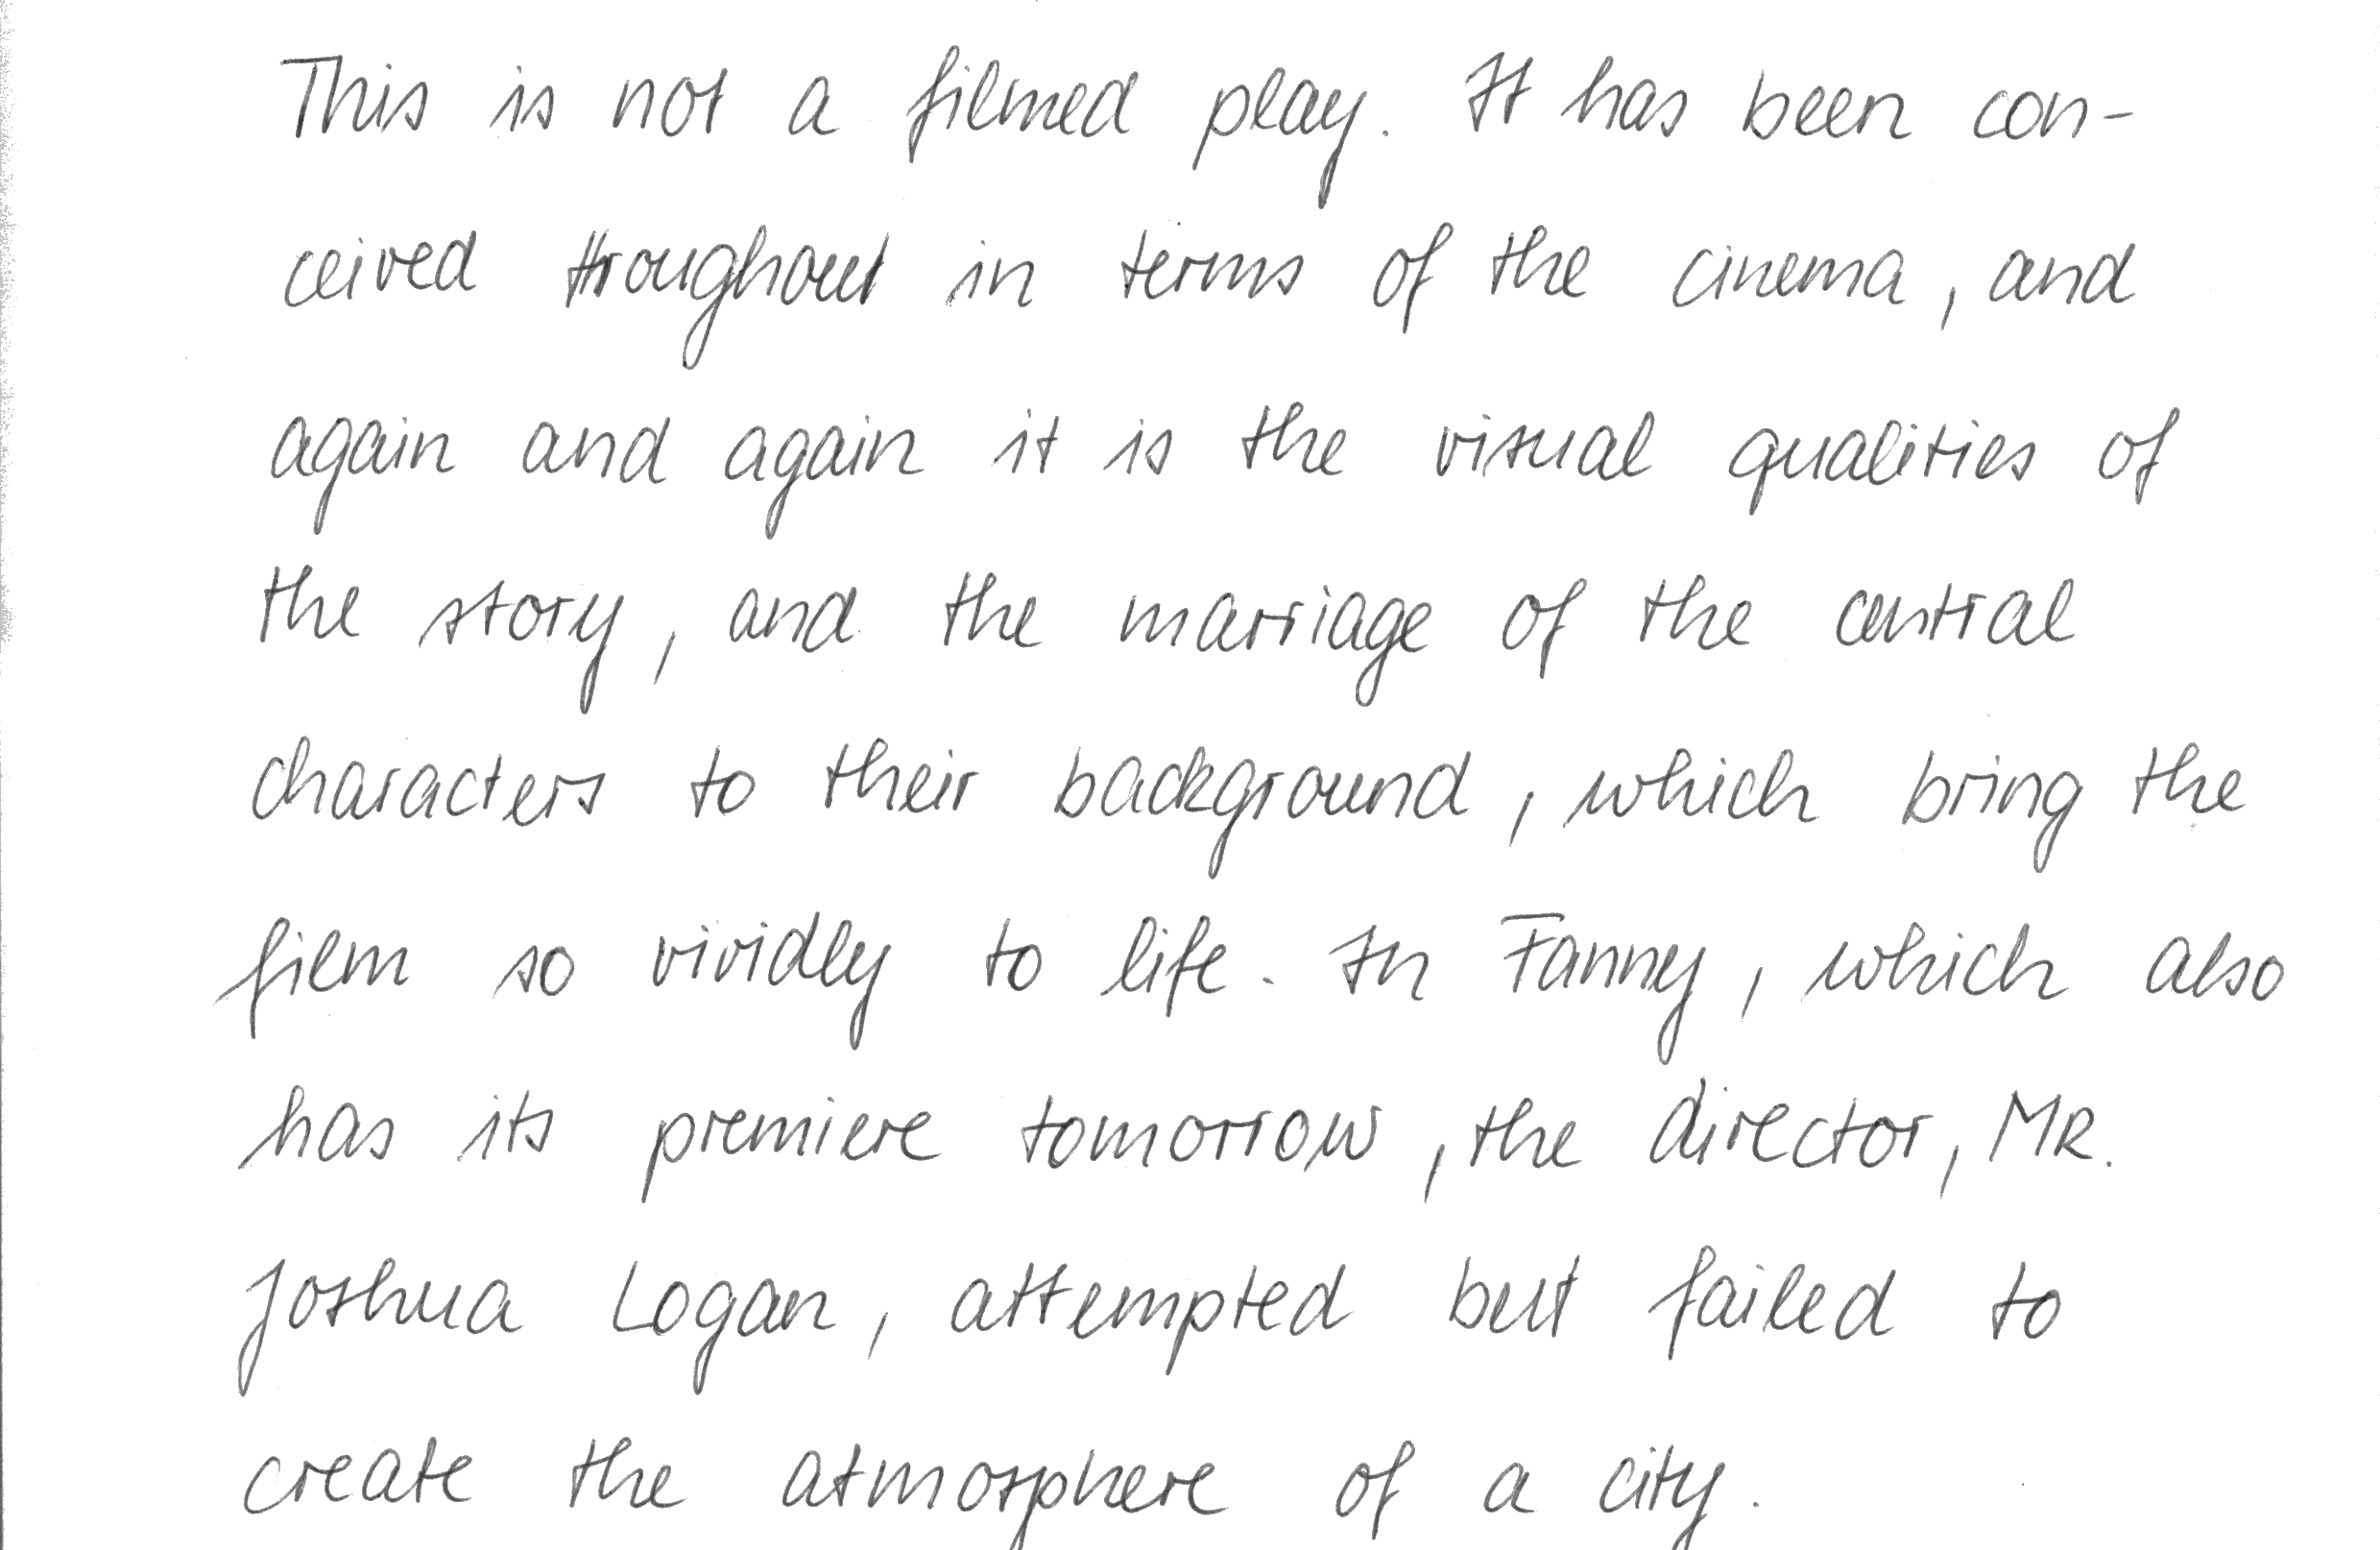 This is not a filmed play. It has been con-
ceived troughout in terms of the cinema, and
again and again it is the visual qualities of
the story, and the marriage of the central
characters to their background, which bring the
film so vividly to life. In Fanny, which also
has its premiere tomorrow, the director, MR.
Joshua Logan, attempted but failed to
create the atmosphere of a city.